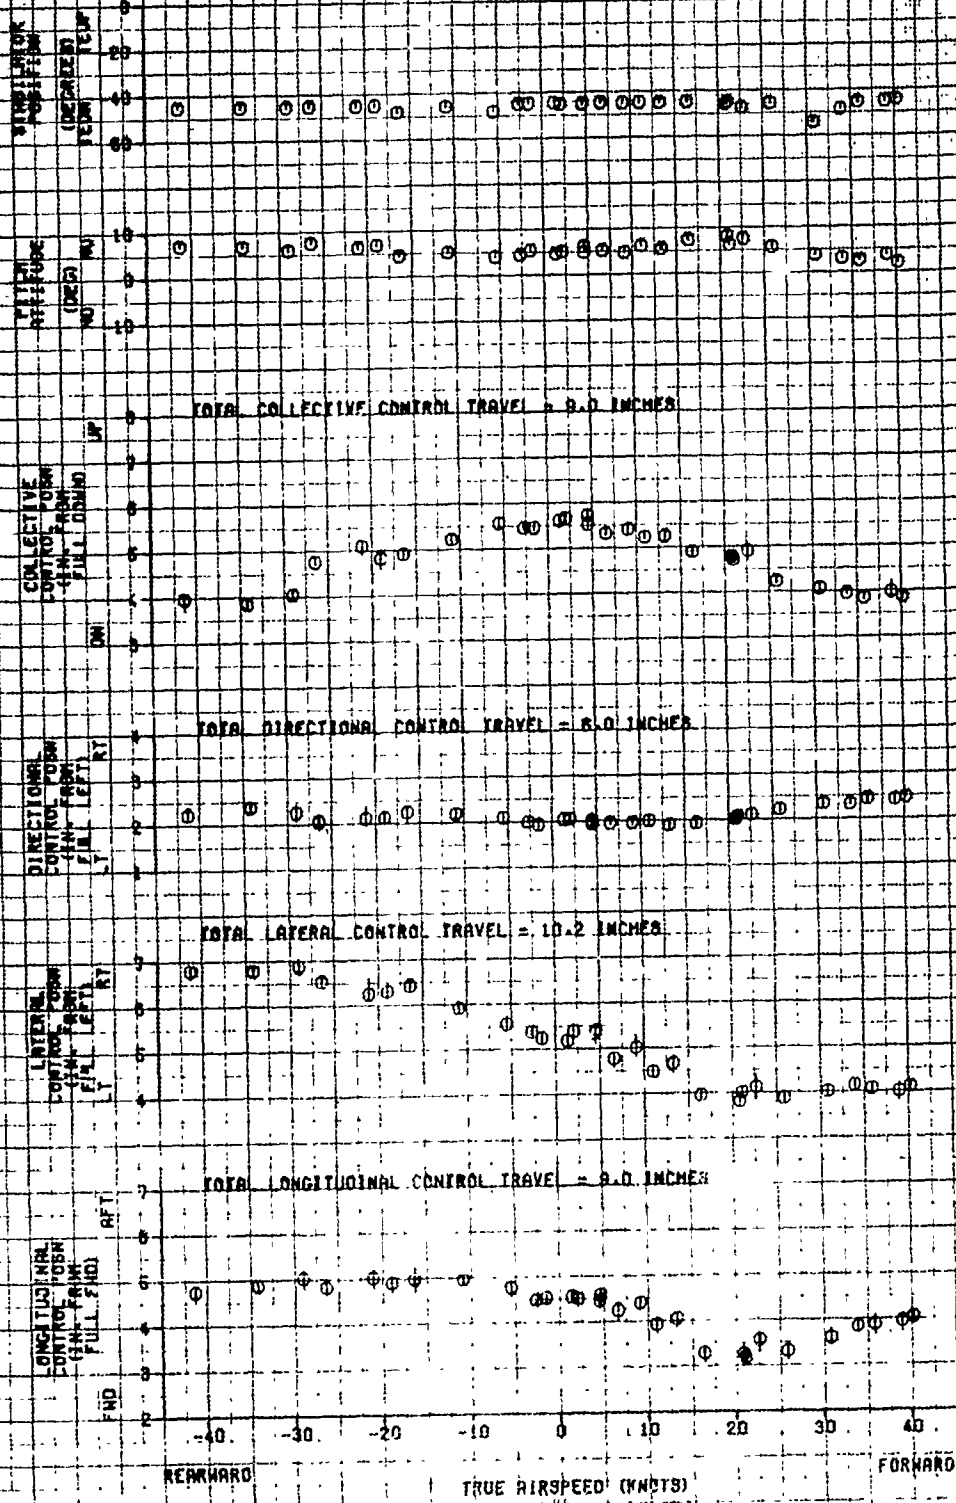 0
20
40
60
STABILATOR
POSITION
(DEGREES)
TEDN TEUP
10
0
10
PITCH
ATTITUDE
(DEG)
ND NU
TOTAL COLLECTIVE CONTROL TRAVEL = 9.0 INCHES
8
7
6
5
4
3
COLLECTIVE
CONTROL POSN
(IN. FROM
FULL DOWN)
DN UP
TOTAL DIRECTIONAL CONTROL TRAVEL = 6.0 INCHES
4
3
2
1
DIRECTIONAL
CONTROL POSN
(IN. FROM
FULL LEFT)
LT RT
TOTAL LATERAL CONTROL TRAVEL = 10.2 INCHES
7
6
5
4
LATERAL
CONTROL POSN
(IN. FROM
FULL LEFT)
LT RT
TOTAL LONGITUDINAL CONTROL TRAVEL = 9.0 INCHES
7
6
5
4
3
2
LONGITUDINAL
CONTROL POSN
(IN. FROM
FULL FWD)
FWD AFT
-40 -30 -20 -10 0 10 20 30 40
REARWARD FORWARD
TRUE AIRSPEED (KNOTS)